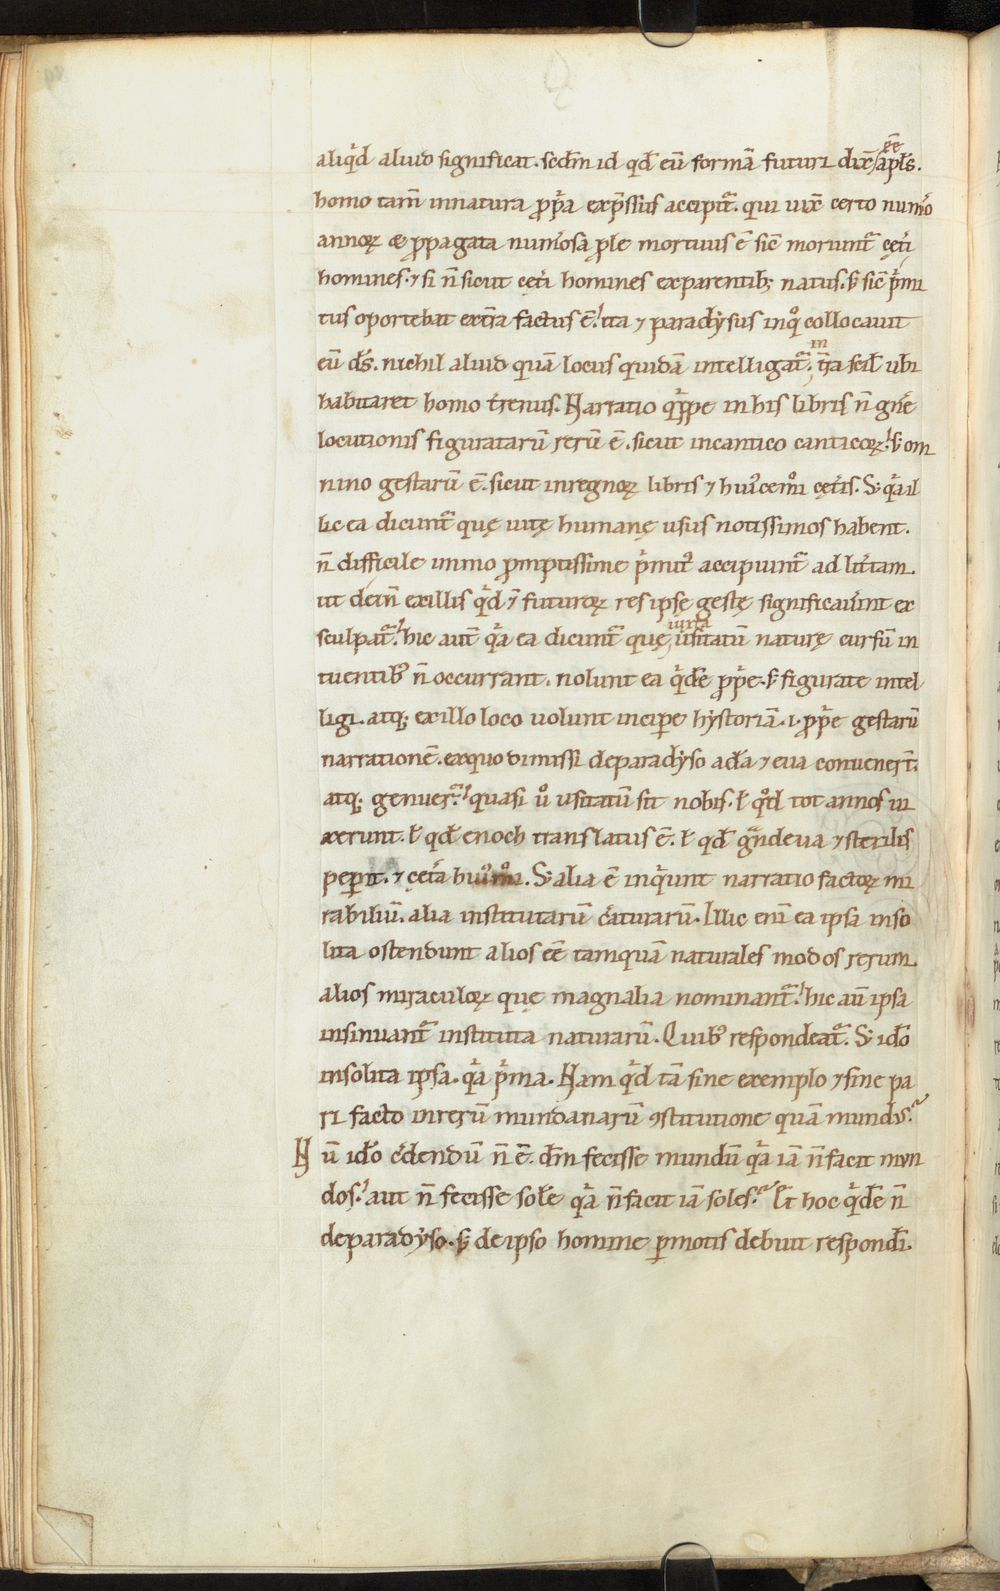 aliq̇d aliud significat. scďm id qđ eū formā futuri dix̄ ēē apł's.
homo tam̄ in natura p̱p̱a exp̄ssus accipit᷑. qui uix̄ certo num̓o
annoꝝ & ꝓpagata num̓osa ꝓle mortuus ē sič moriunt᷑ cęt̓i
homines. ⁊ si n̄ sicut cęt̓i homines ex parentib; natus. s; sič p̓mi
tus oportebat ex tr̄a factus ē. ita ⁊ paradysus in q̊ collocauit
eū ds̄. nichil aliud quā locus quidā intelligat᷑. in tr̄a scił ubi
habitaret homo tr̓enus. Narratio q̓ppe in his libris n̄ gn̓e
locutionis figuratarū rerū ē. sicut in cantico canticoꝝ. s; om
nino gestarū ē. sicut in regnoꝝ libris ⁊ hui᷒cem̊i cęt̓is. S; q̓a il
lic ea dicunt᷑ quę uitę humanę usus notissimos habent.
n̄ difficile immo ꝓmptissime p̓mit᷒ accipiunt᷑ ad litt̓am.
ut dein̄ ex illis q̓d ⁊ futuroꝝ res ipsę gestę significauer̄int ex
sculpat᷑. hic aut̄ q̓a ea dicunt᷑ quę iuxta usitatū naturę cursū in
tuentib᷒ n̄ occurrant. nolunt ea q̓dē ꝓp̓e. s; figurate intel
ligi. atq; ex illo loco uolunt incipe hystoriā. .i. ꝓp̓e gestarū
narrationē. ex quo dimissi de paradyso adā ⁊ eua conuener̄t.
atq; genuer̄. quasi ů usitatū sit nobis. ł qd̊ tot annos ui
xerunt. ł qđ enoch translatus ē. ł qđ g̓ndeua ⁊ sterilis
pep̱it. ⁊ cęt̓a hui᷒m̊i. S; alia ē inq̓unt narratio factoꝝ mi
rabiliū. alia institutarū c̓aturarū. Illic enī ea ipsa inso
lita ostendunt alios eē̄ tamquā naturales modos rerum.
alios miraculoꝝ quę magnalia nominant᷑. hic aū ipsa
insinuant᷑ instituta naturarū. Quib᷒ respondeat᷑. S; id̊o
insolita ipsa. q̓a p̓ma. Nam q̓d tā sine exemplo ⁊ sine pa
ri facto in rerū mundanarū ꝯstitutione quā mundus.
Nū id̊o c̓dendū n̄ ē. dm̄ fecisse mundū q̓a iā n̄ facit mun
dos. aut n̄ fecisse solē q̓a n̄ facit iā soles. Et hoc q̓dē n̄
de paradyso. s; de ipso homine p̱motis debuit respondi.